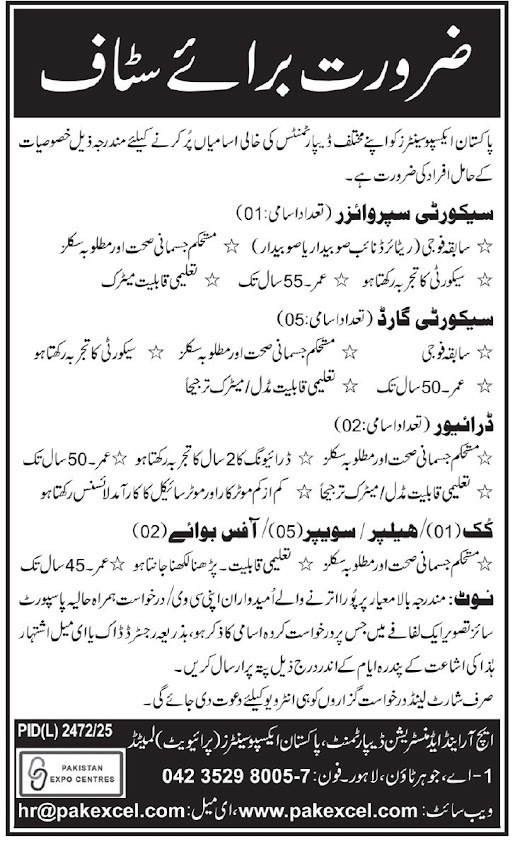 ضرورت برائے سٹاف
پاکستان ایکسپو سینٹرز کو اپنے مختلف ڈیپارٹمنٹس کی خالی اسامیاں پُر کرنے کیلئے مندرجہ ذیل خصوصیات
کے حامل افراد کی ضرورت ہے۔
سیکورٹی سپروائزر (تعداد اسامی:01)
☆ سابقہ فوجی (ریٹائرڈ نائب صوبیدار یا صوبیدار) ☆ مستحکم جسمانی صحت اور مطلوبہ سکلز
☆ سیکورٹی کا تجربہ رکھتا ہو ☆ عمر۔55 سال تک ☆ تعلیمی قابلیت میٹرک
سیکورٹی گارڈ (تعداد اسامی:05)
☆ سابقہ فوجی ☆ مستحکم جسمانی صحت اور مطلوبہ سکلز ☆ سیکورٹی کا تجربہ رکھتا ہو
☆ عمر۔50 سال تک ☆ تعلیمی قابلیت مڈل/میٹرک ترجیحاً
ڈرائیور (تعداد اسامی:02)
☆ مستحکم جسمانی صحت اور مطلوبہ سکلز ☆ ڈرائیونگ کا 2 سال کا تجربہ رکھتا ہو ☆ عمر۔50 سال تک
☆ تعلیمی قابلیت مڈل/میٹرک ترجیحاً ☆ کم از کم موٹر کار اور موٹر سائیکل کا کارآمد لائسنس رکھتا ہو
کُک (01)/ھیلپر/سویپر (05)/آفس بوائے (02)
☆ مستحکم جسمانی صحت اور مطلوبہ سکلز ☆ تعلیمی قابلیت۔ پڑھنا لکھنا جانتا ہو ☆ عمر۔45 سال تک
نوٹ: مندرجہ بالا معیار پر پُورا اترنے والے اُمیدواران اپنی سی وی/درخواست ہمراہ حالیہ پاسپورٹ
سائز تصویر ایک لفافے میں جس پر درخواست کردہ اسامی کا ذکر ہو، بذریعہ رجسٹرڈ ڈاک یا ای میل اشتہار
ہٰذا کی اشاعت کے پندرہ ایام کے اندر درج ذیل پتہ پر ارسال کریں۔
صرف شارٹ لیِنڈ درخواست گزاروں کو ہی انٹرویو کیلئے دعوت دی جائے گی۔
PID(L) 2472/25
ایچ آر اینڈ ایڈمنسٹریشن ڈیپارٹمنٹ، پاکستان ایکسپو سینٹرز (پرائیویٹ) لمیٹڈ
PAKISTAN
EXPO CENTRES
1-اے، جوہر ٹاؤن، لاہور۔ فون: 042 3529 8005-7
ویب سائٹ: www.pakexcel.com، ای میل: hr@pakexcel.com